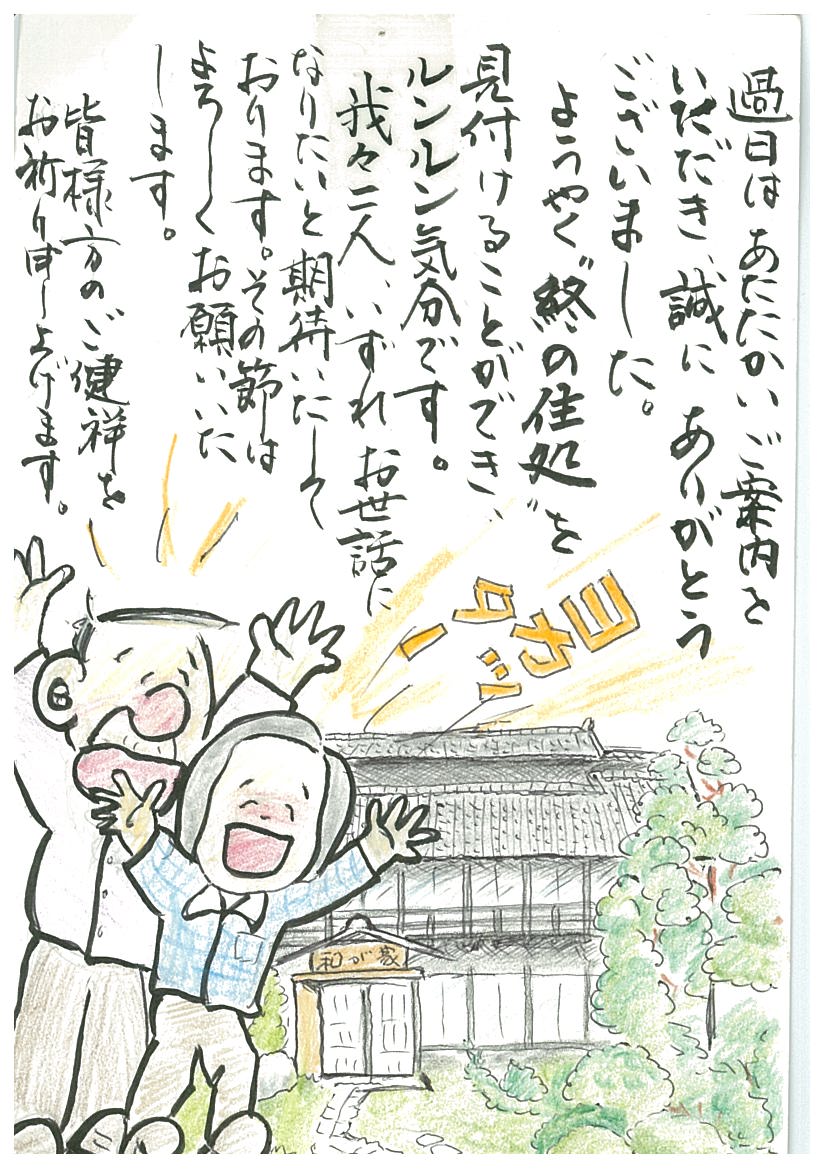 過日はあたたかいご案内を
いただき、誠にありがとう
ございました。
ようやく“終の住処”を
見付けることができ、
ルンルン気分です。
我々二人、いずれお世話に
なりたいと期待いたして
おります。その節は
よろしくお願いいた
します。
皆様方のご健祥を
お祈り申し上げます。
ヨカッ
ター
和が家